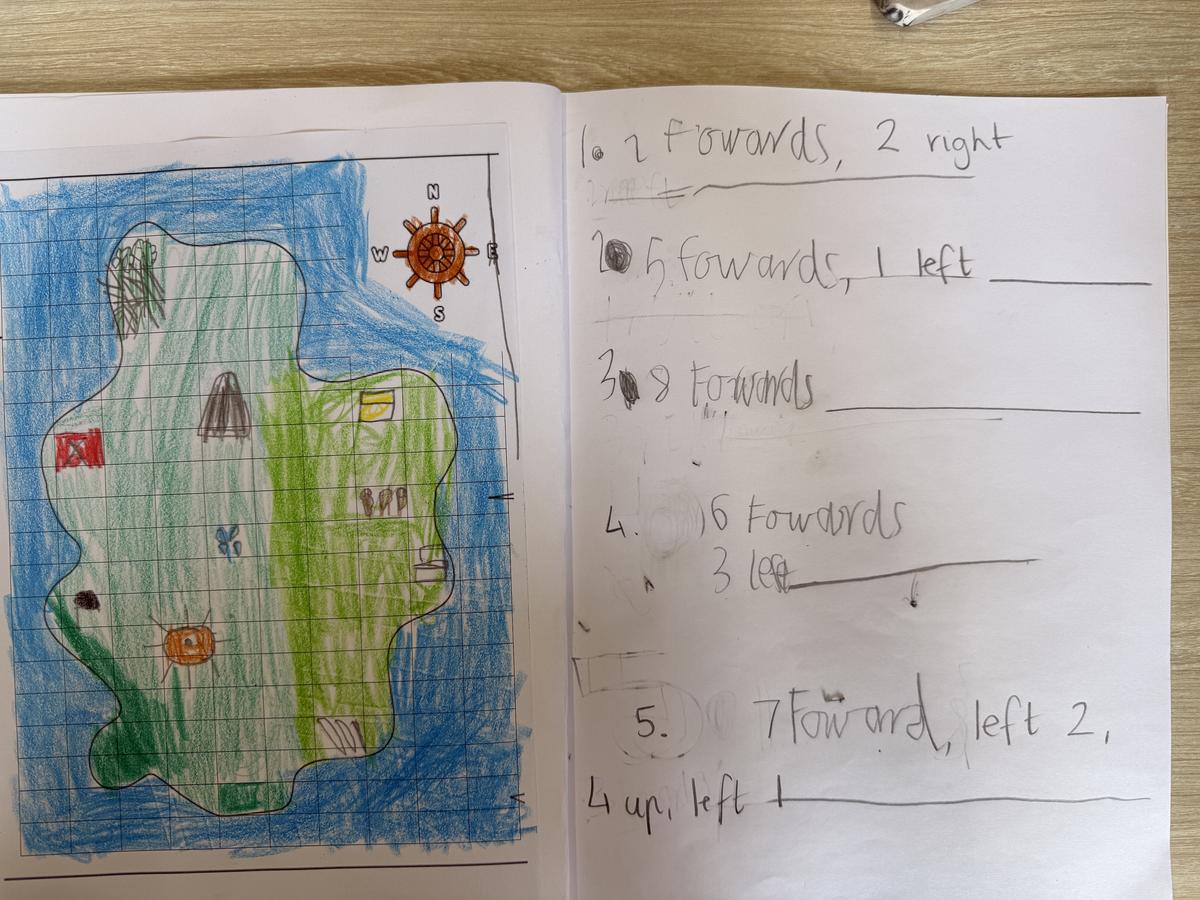 N
W
E
S
X
1. 2 Fowards, 2 right
2 5 fowards, 1 left
3 8 Fowards
4. 6 Fowards
3 left
5. 7 Foward, left 2,
4 up, left 1